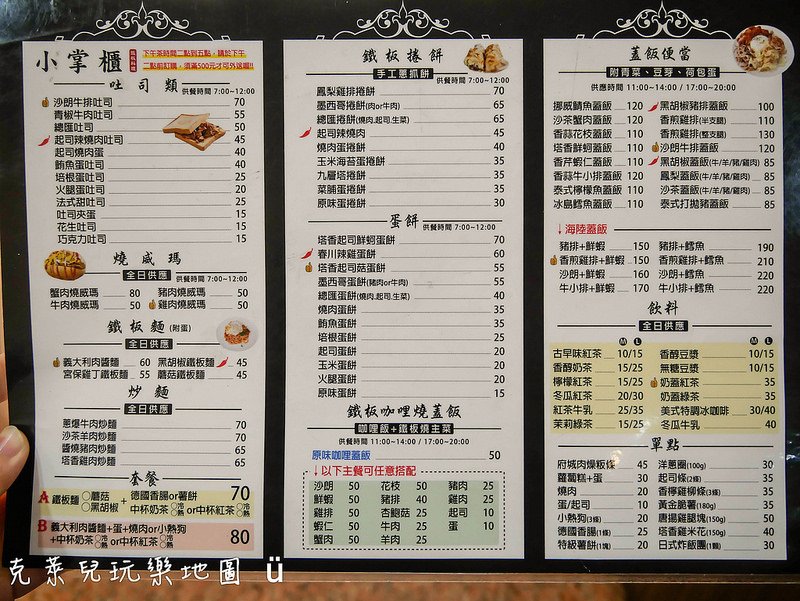 小掌櫃
鐵板料理
下午茶時間二點到五點，請於下午
二點前訂購，須滿500元才可外送喔!!
吐司類
供餐時間 7:00~12:00
沙朗牛排吐司 70
青椒牛肉吐司 55
總匯吐司 50
起司辣燒肉吐司 45
起司燒肉蛋 40
鮪魚蛋吐司 35
培根蛋吐司 25
火腿蛋吐司 25
法式甜吐司 25
吐司夾蛋 15
花生吐司 15
巧克力吐司 15
燒威瑪
全日供應
供餐時間 7:00~12:00
蟹肉燒威瑪 80 豬肉燒威瑪 50
牛肉燒威瑪 50 雞肉燒威瑪 50
鐵板麵(附蛋)
全日供應
義大利肉醬麵 60 黑胡椒鐵板麵 45
宮保雞丁鐵板麵 55 蘑菇鐵板麵 45
炒麵
全日供應
蔥爆牛肉炒麵 70
沙茶羊肉炒麵 70
醬燒豬肉炒麵 65
塔香雞肉炒麵 65
套餐
A 鐵板麵 ○蘑菇 ○黑胡椒 + 德國香腸or薯餅 70
中杯奶茶 ○冷 ○熱 or中杯紅茶 ○冷 ○熱
B 義大利肉醬麵+蛋+燒肉or小熱狗 80
+中杯奶茶 ○冷 ○熱 or中杯紅茶 ○冷 ○熱
鐵板捲餅
手工蔥抓餅
供餐時間 7:00~12:00
鳳梨雞排捲餅 70
墨西哥捲餅(肉or牛肉) 65
總匯捲餅(燒肉.起司.生菜) 65
起司辣燒肉 45
燒肉蛋捲餅 40
玉米海苔蛋捲餅 35
九層塔捲餅 35
菜脯蛋捲餅 35
原味蛋捲餅 30
蛋餅
供餐時間 7:00~12:00
塔香起司鮮蚵蛋餅 70
春川辣雞蛋餅 60
塔香起司菇蛋餅 55
墨西哥蛋餅(豬肉or牛肉) 55
總匯蛋餅(燒肉.起司.生菜) 40
燒肉蛋餅 35
鮪魚蛋餅 35
培根蛋餅 25
起司蛋餅 20
玉米蛋餅 20
火腿蛋餅 20
原味蛋餅 15
鐵板咖哩燒蓋飯
咖哩飯+鐵板燒主菜
供餐時間 11:00~14:00 / 17:00~20:00
原味咖哩蓋飯 50
↓以下主餐可任意搭配
沙朗 50 花枝 50 豬肉 25
鮮蝦 50 豬排 40 雞肉 25
雞排 50 杏鮑菇 25 起司 10
蝦仁 50 牛肉 25 蛋 10
蟹肉 50 羊肉 25
蓋飯便當
附青菜、豆芽、荷包蛋
供應時間 11:00~14:00 / 17:00~20:00
挪威鯖魚蓋飯 120 黑胡椒豬排蓋飯 100
沙茶蟹肉蓋飯 120 香煎雞排(半支腿) 100
香蒜花枝蓋飯 110 香煎雞排(整支腿) 130
塔香鮮蚵蓋飯 110 沙朗牛排蓋飯 120
香芹蝦仁蓋飯 110 黑胡椒蓋飯(牛/羊/豬/雞肉) 85
香蒜牛小排蓋飯 120 鳳梨蓋飯(牛/羊/豬/雞肉) 85
泰式檸檬魚蓋飯 110 沙茶蓋飯(牛/羊/豬/雞肉) 85
冰島鱈魚蓋飯 110 泰式打拋豬蓋飯 85
↓海陸蓋飯
豬排+鮮蝦 150 豬排+鱈魚 190
香煎雞排+鮮蝦 150 香煎雞排+鱈魚 210
沙朗+鮮蝦 160 沙朗+鱈魚 220
牛小排+鮮蝦 170 牛小排+鱈魚 220
飲料
全日供應
M L M L
古早味紅茶 10/15 香醇豆漿 10/15
香醇奶茶 15/25 無糖豆漿 10/15
檸檬紅茶 15/25 奶蓋紅茶 35
冬瓜紅茶 20/30 奶蓋綠茶 35
紅茶牛乳 25/35 美式特調冰咖啡 30/40
茉莉綠茶 15/25 冬瓜牛乳 40
單點
府城肉燥粄條 45 洋蔥圈(100g) 30
蘿蔔糕+蛋 30 起司條(2條) 35
燒肉 20 香檸雞柳條(3條) 35
蛋/起司 10 黃金脆薯(180g) 35
小熱狗(3條) 20 唐揚雞腿塊(150g) 50
德國香腸(1條) 25 塔香雞米花(150g) 40
特級薯餅(1塊) 20 日式炸飯團(1顆) 30
克萊兒玩樂地圖 ü